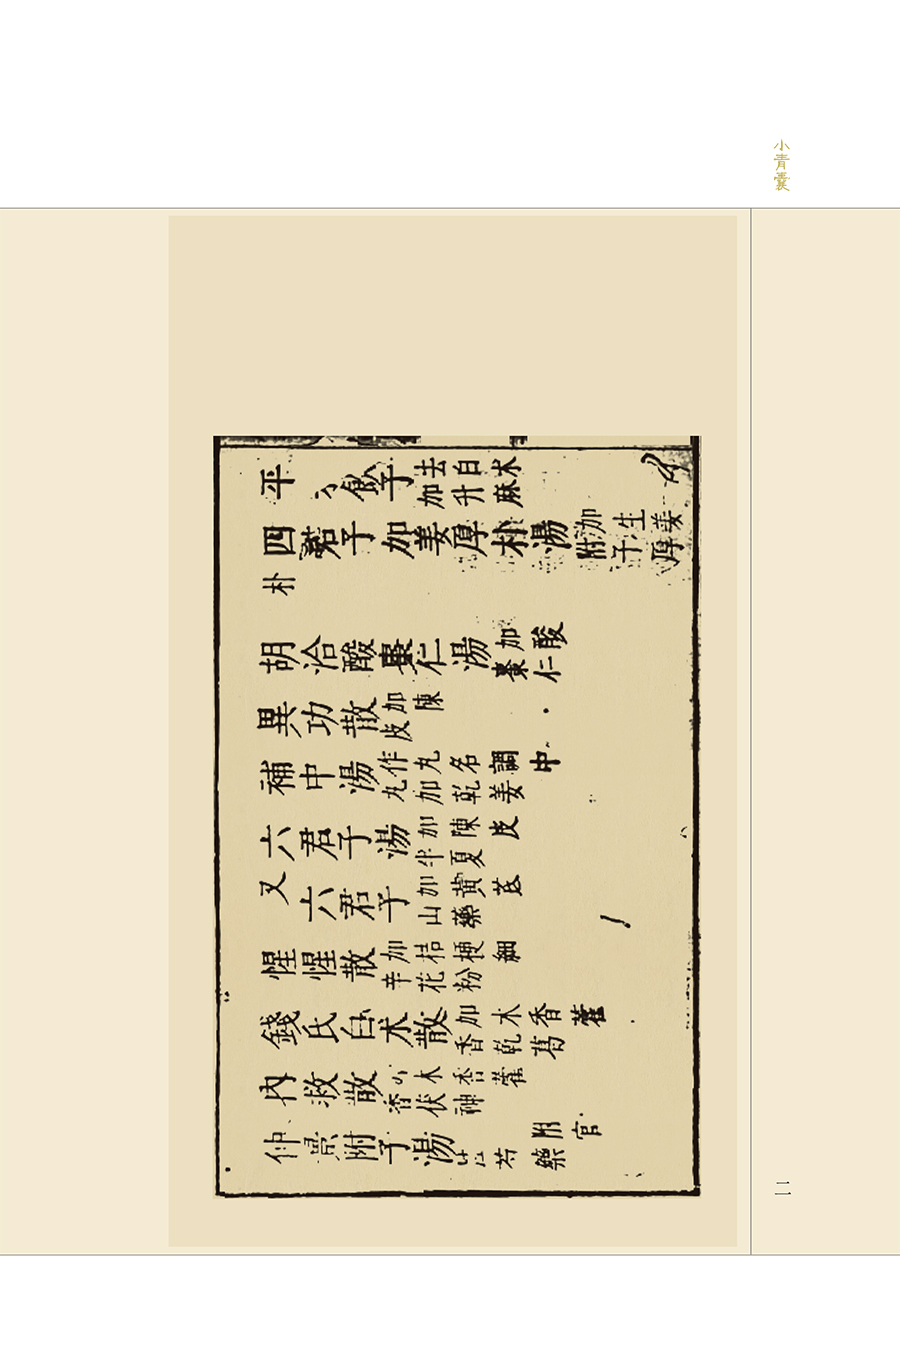 小青囊
平
飲子去白术加升麻
四君子加姜厚朴湯加生姜附子厚
朴
胡洽酸棗仁湯加酸棗仁
異功散加陳皮
補中湯作丸名調中丸加乾姜
六君子湯加陳皮半夏
又六君子加黄芪山藥
惺惺散加桔梗細辛花粉
錢氏白术散加木香藿香乾葛
內救散木香藿香伏神
仲景附子湯附官芍藥
二